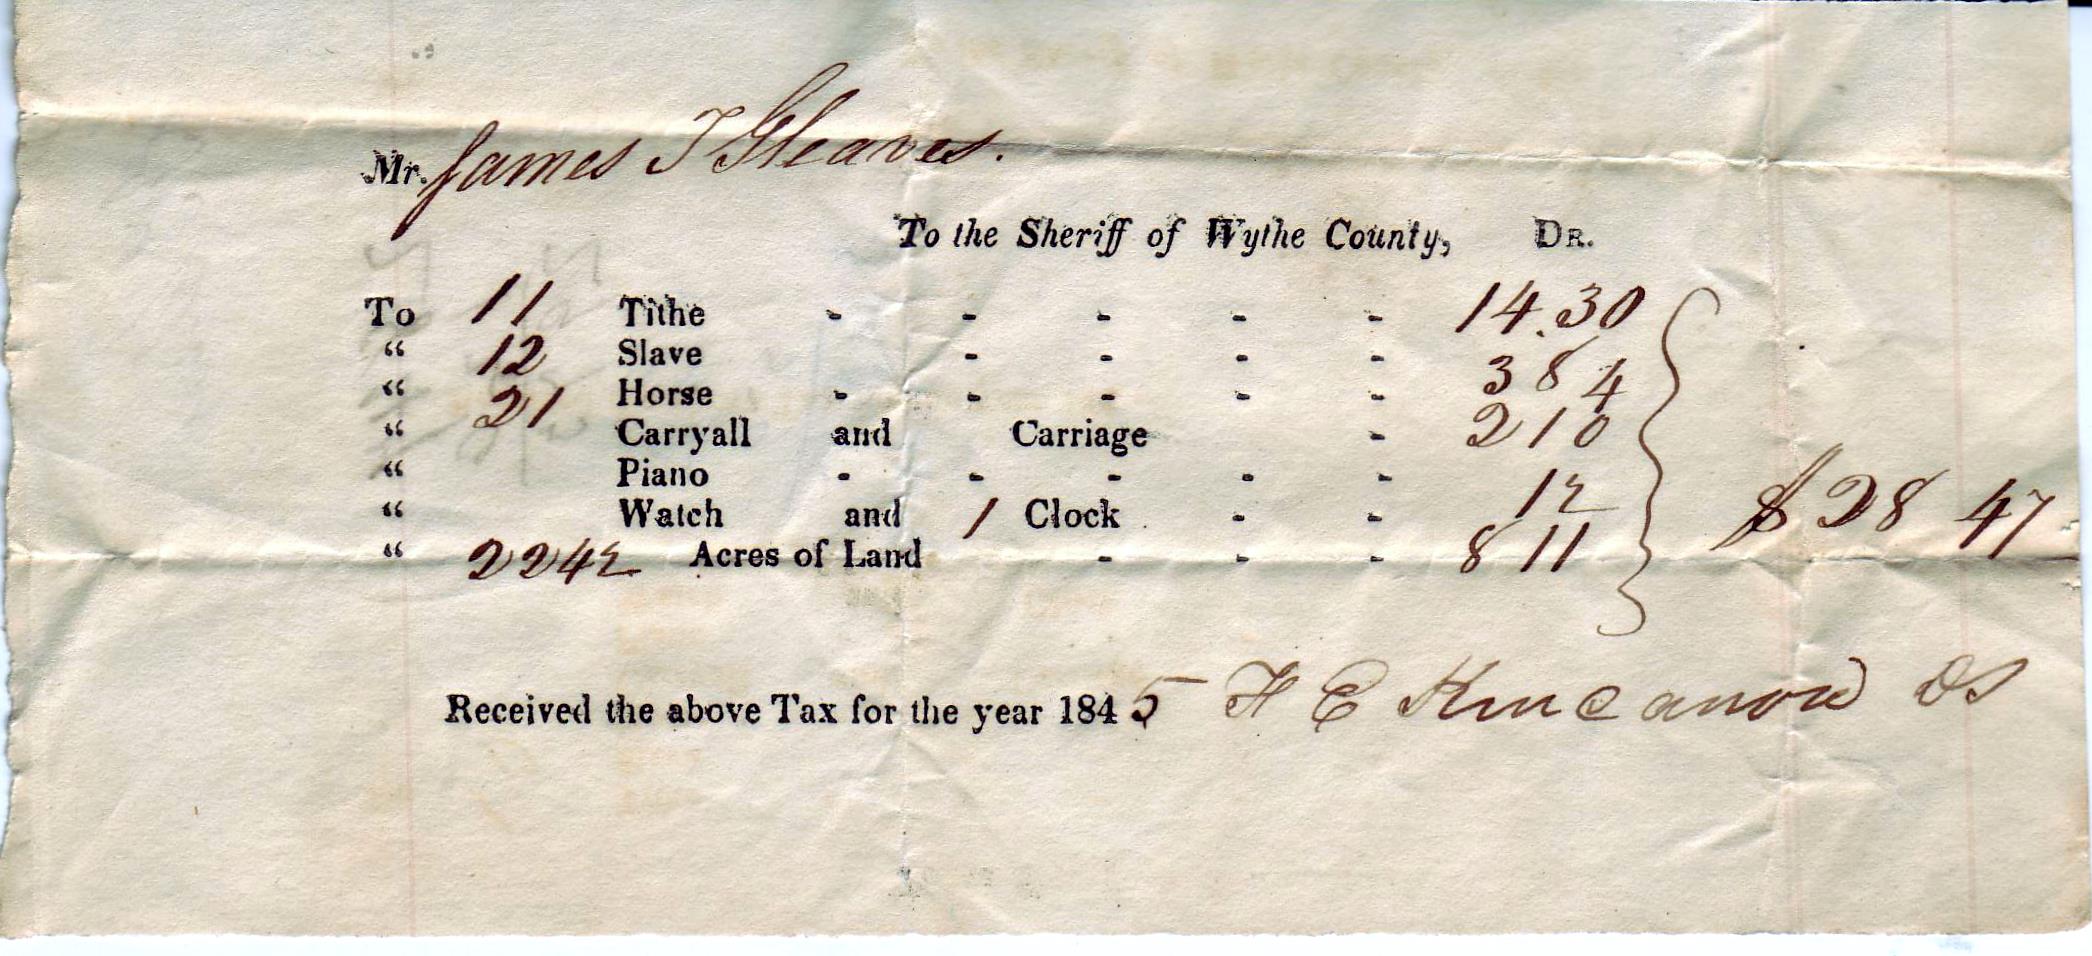 Mr. James T Gleaves.
To the Sheriff of Wythe County, DR.
To 11 Tithe - - - - - 14.30
“ 12 Slave - - - - 3 84
“ 21 Horse - - - - - 2 10
“ Carryall and Carriage -
“ Piano - - - - -
“ Watch and 1 Clock - - 12
“ 2242 Acres of Land - - - 8 11
$ 28 47
Received the above Tax for the year 1845 F E Kincanon DS